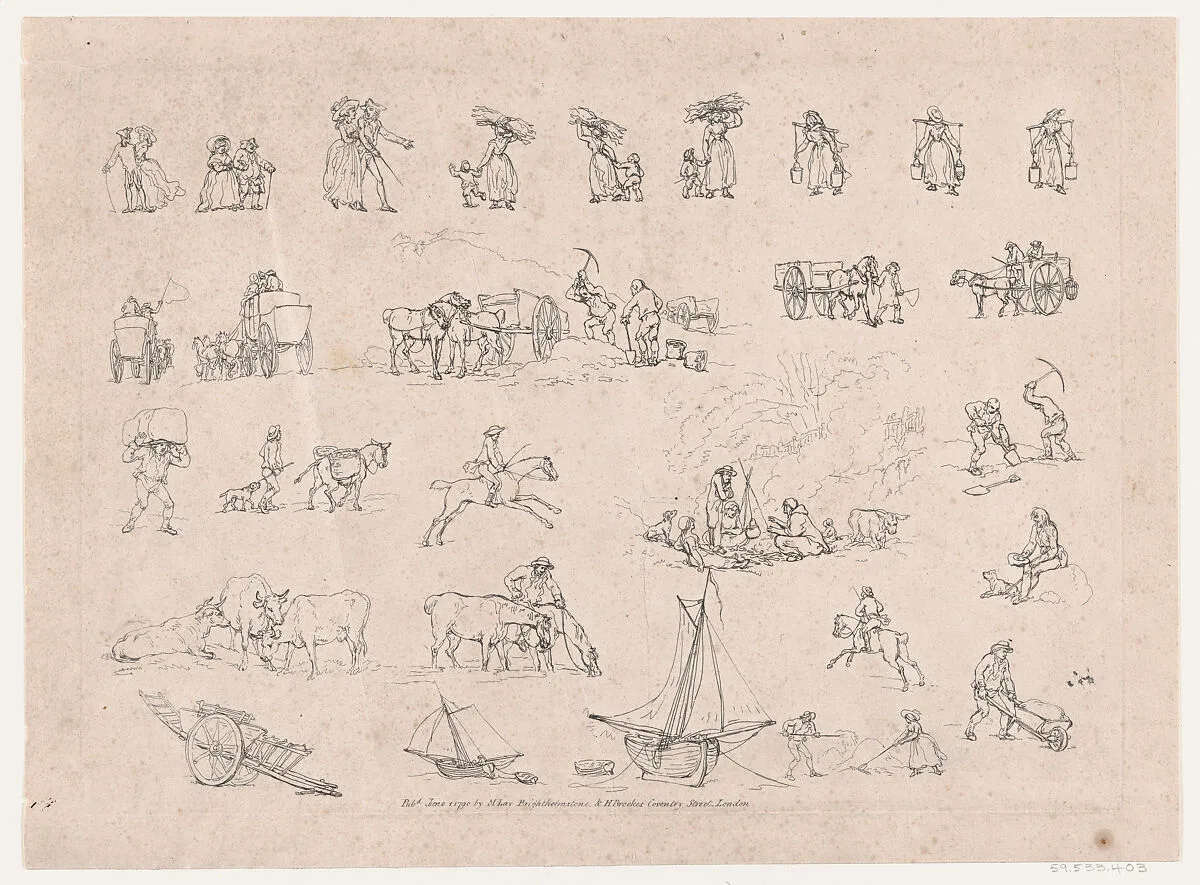 Pub.d June 1 1790 by M. Lay Brighthelmstone, & H Brookes Coventry Street_London
59.533.403